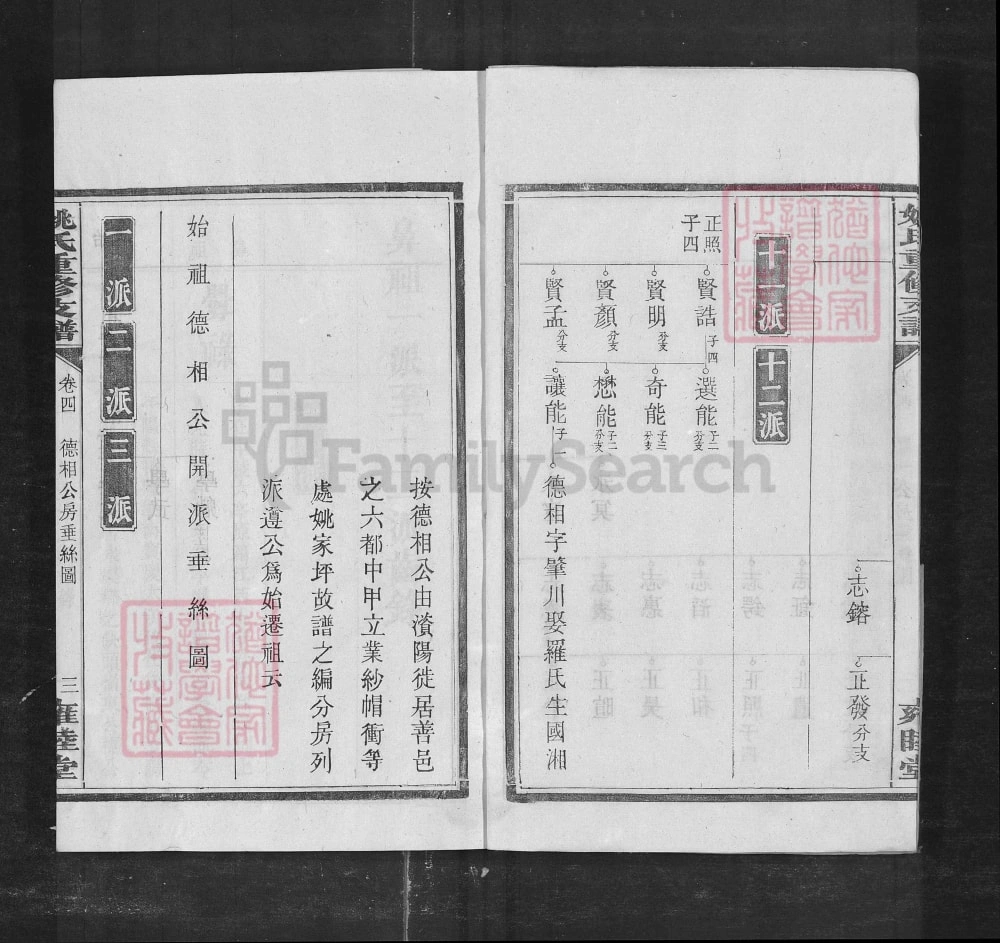 姚氏重修支譜
志鎔
正發分支
十一派
十二派
正照子四
賢誥子四
賢明分支
賢顏分支
賢孟分支
選能子二分支
奇能子三分支
懋能子二分支
讓能子一
德相字肇川娶羅氏生國湘
按德相公由濱陽徙居善邑
之六都中甲立業紗帽衝等
處姚家坪故譜之編分房列
派遵公爲始遷祖云
始祖德相公開派垂絲圖
一派
二派
三派
姚氏重修支譜
卷四
德相公房垂絲圖
三
雍睦堂
FamilySearch